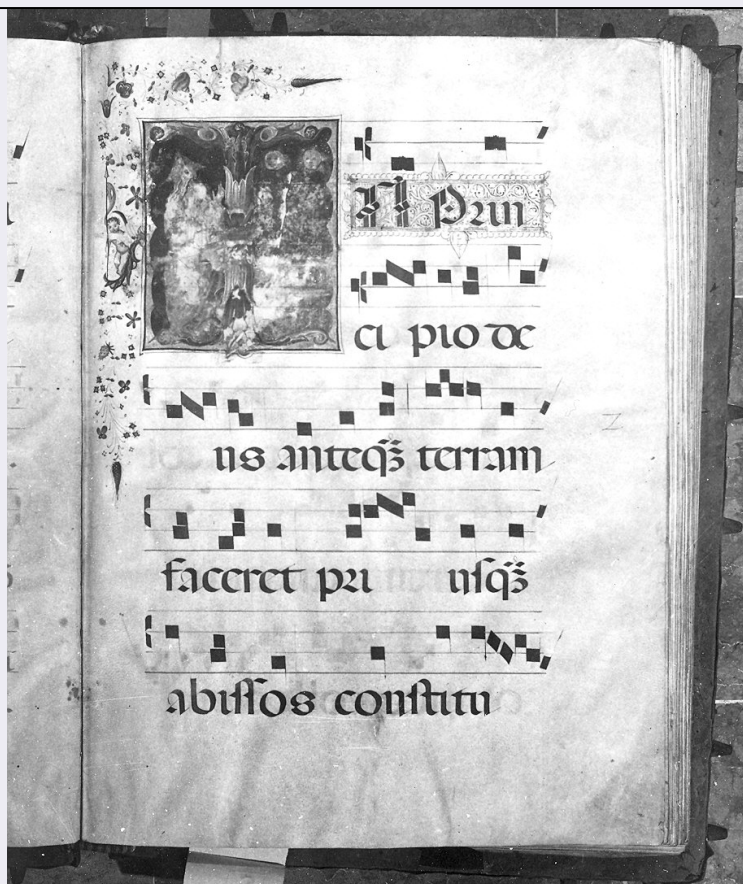 IN Prin
ci pio de
us anteq̄ʒ terram
faceret pri uſq̄ʒ
abiſſos conſtitu